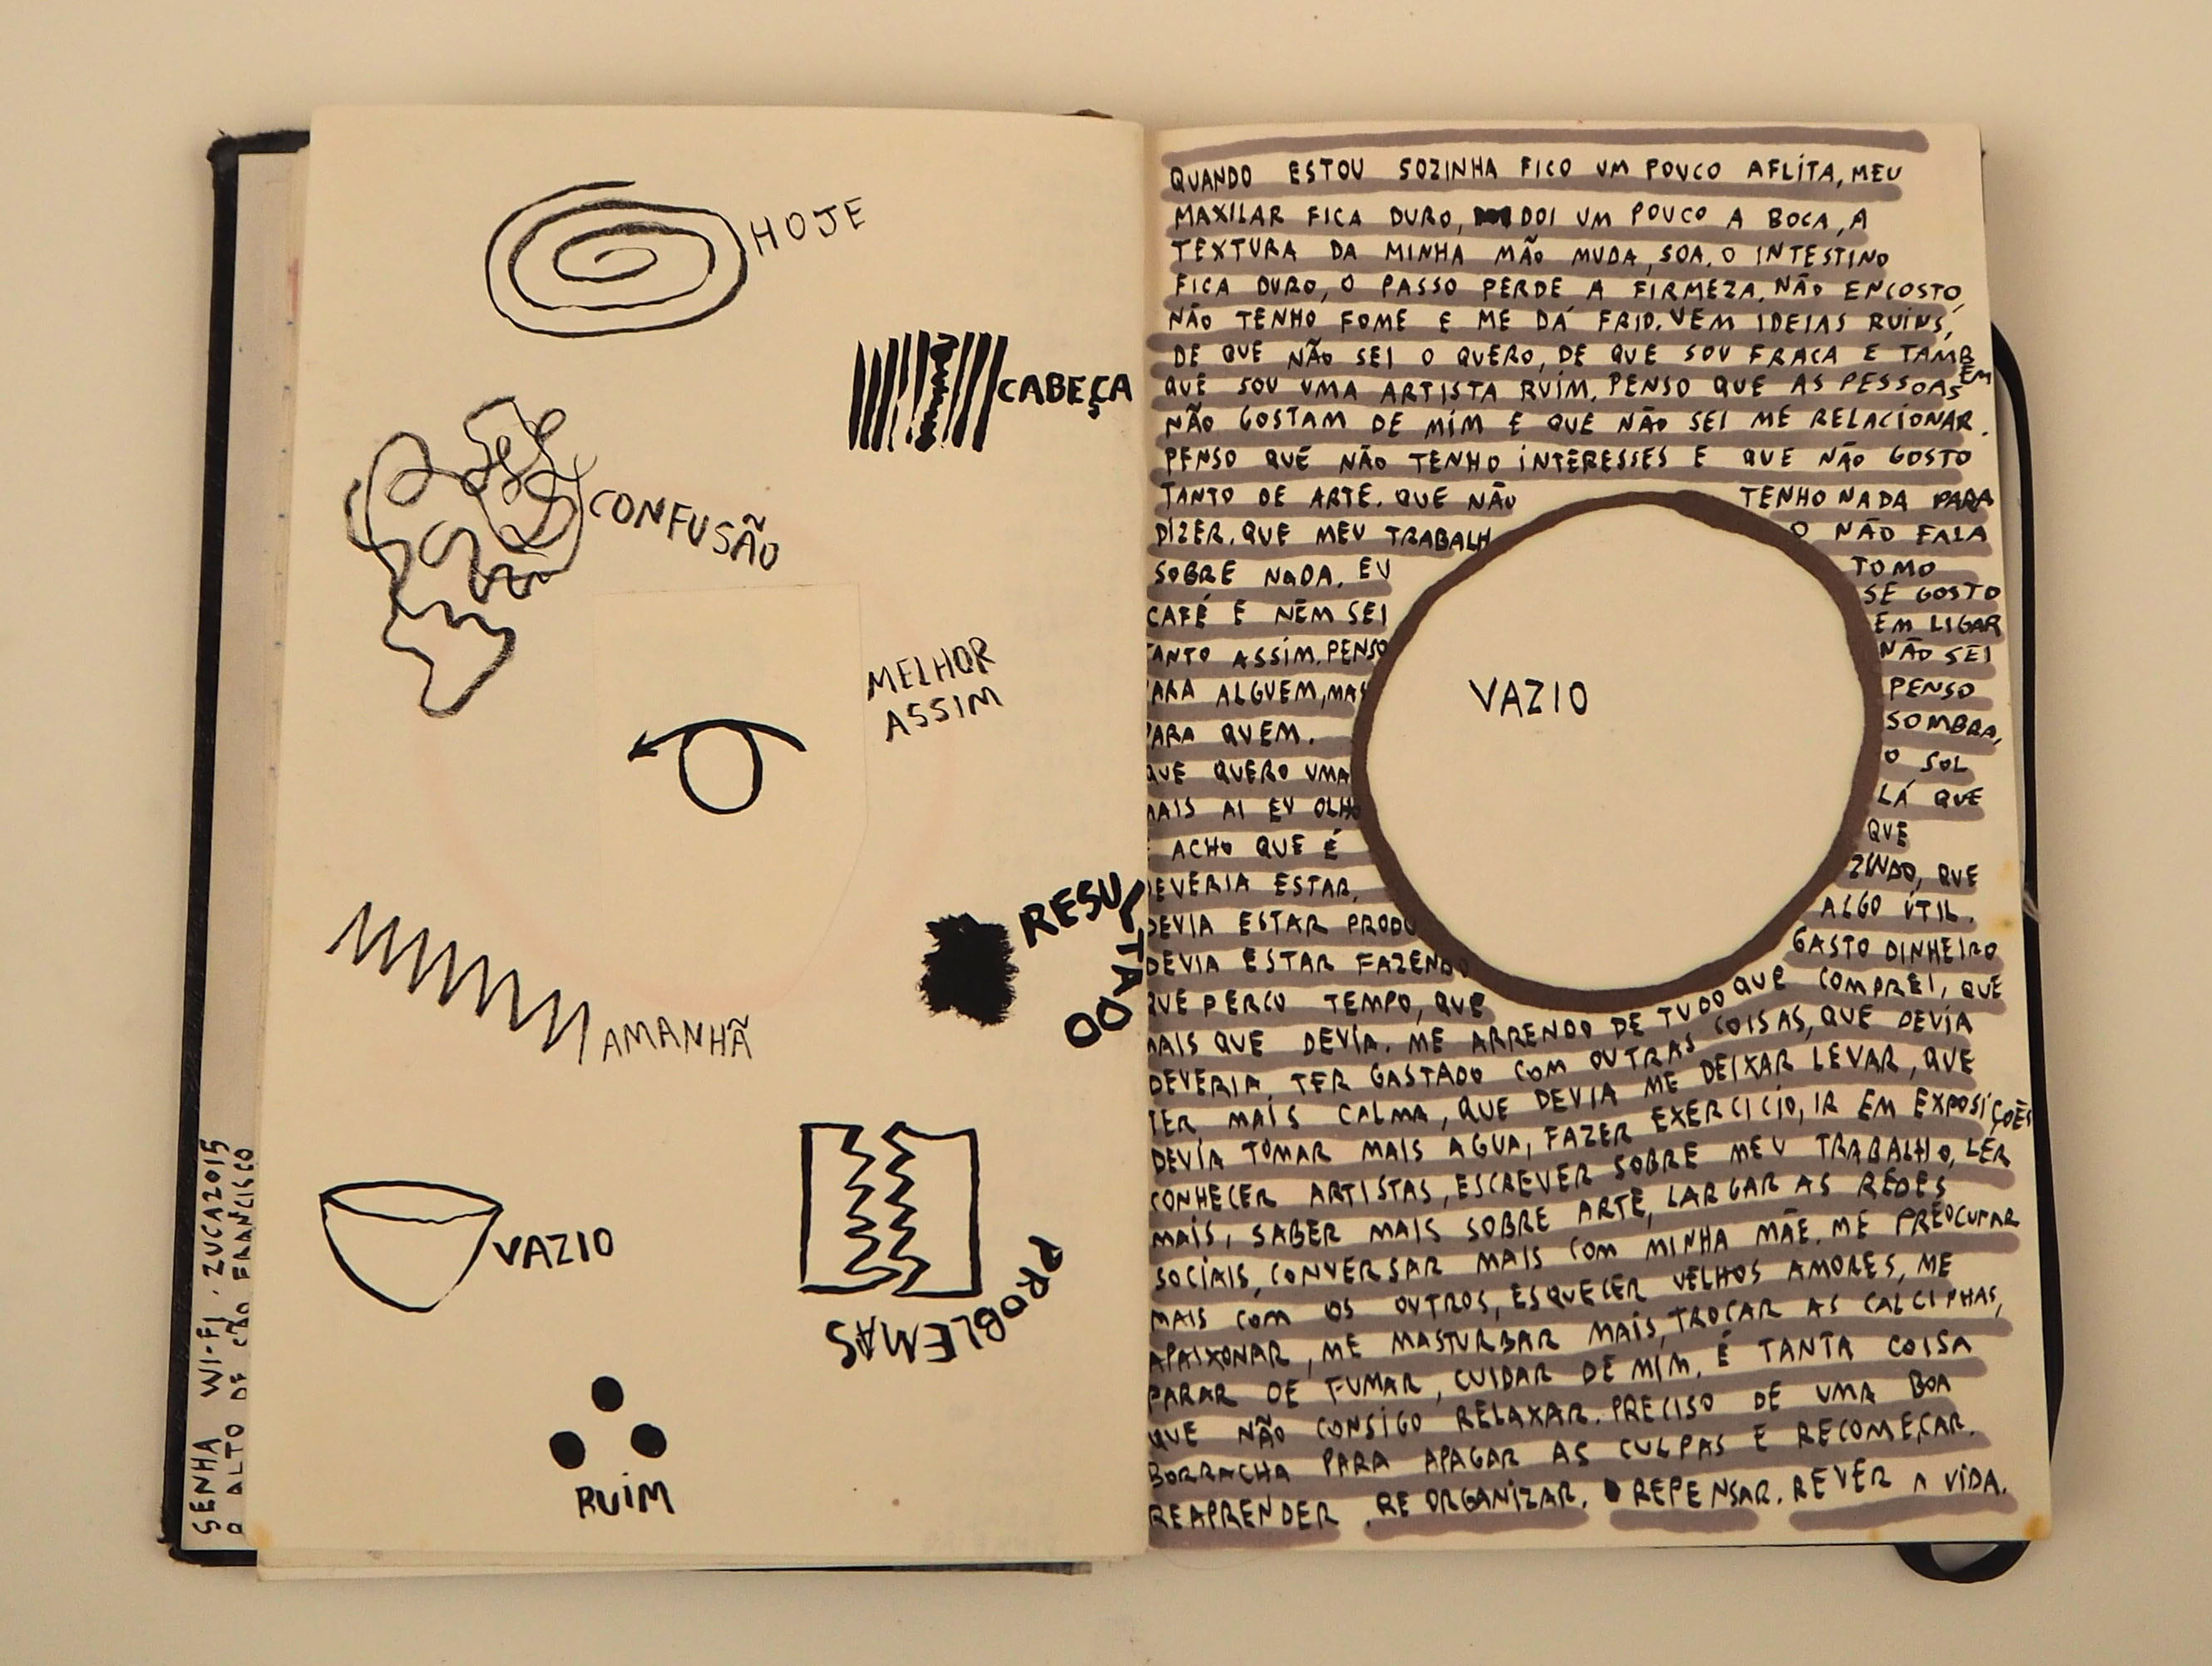 HOJE
CABEÇA
CONFUSÃO
MELHOR
ASSIM
RESULTADO
AMANHÃ
VAZIO
PROBLEMAS
RUIM
SENHA WI-FI. ZUCA2015
O ALTO DE SÃO FRANCISCO
QUANDO ESTOU SOZINHA FICO UM POUCO AFLITA, MEU
MAXILAR FICA DURO, DOI UM POUCO A BOCA, A
TEXTURA DA MINHA MÃO MUDA, SOA. O INTESTINO
FICA DURO, O PASSO PERDE A FIRMEZA. NÃO ENCOSTO,
NÃO TENHO FOME E ME DÁ FRIO. VEM IDEIAS RUINS,
DE QUE NÃO SEI O QUERO, DE QUE SOU FRACA E TAMBEM
QUE SOU UMA ARTISTA RUIM. PENSO QUE AS PESSOAS
NÃO GOSTAM DE MIM E QUE NÃO SEI ME RELACIONAR.
PENSO QUE NÃO TENHO INTERESSES E QUE NÃO GOSTO
TANTO DE ARTE. QUE NÃO TENHO NADA PARA
DIZER, QUE MEU TRABALHO NÃO FALA
SOBRE NADA. EU TOMO
CAFÉ E NEM SEI SE GOSTO
TANTO ASSIM. PENSO EM LIGAR
PARA ALGUEM, MAS NÃO SEI
PARA QUEM. PENSO
QUE QUERO UMA SOMBRA,
MAIS AI EU OLHO O SOL
E ACHO QUE É LÁ QUE
DEVERIA ESTAR, QUE
DEVIA ESTAR PRODUZINDO, QUE
DEVIA ESTAR FAZENDO ALGO ÚTIL.
QUE PERCO TEMPO, QUE GASTO DINHEIRO
MAIS QUE DEVIA. ME ARRENDO DE TUDO QUE COMPREI, QUE
DEVERIA TER GASTADO COM OUTRAS COISAS, QUE DEVIA
TER MAIS CALMA, QUE DEVIA ME DEIXAR LEVAR, QUE
DEVIA TOMAR MAIS AGUA, FAZER EXERCICIO, IR EM EXPOSIÇÕES
CONHECER ARTISTAS, ESCREVER SOBRE MEU TRABALHO, LER
MAIS, SABER MAIS SOBRE ARTE, LARGAR AS REDES
SOCIAIS, CONVERSAR MAIS COM MINHA MÃE. ME PREOCUPAR
MAIS COM OS OUTROS, ESQUECER VELHOS AMORES, ME
APAIXONAR, ME MASTURBAR MAIS, TROCAR AS CALCINHAS,
PARAR DE FUMAR, CUIDAR DE MIM. É TANTA COISA
QUE NÃO CONSIGO RELAXAR. PRECISO DE UMA BOA
BORRACHA PARA APAGAR AS CULPAS E RECOMEÇAR.
REAPRENDER. RE ORGANIZAR. REPENSAR. REVER A VIDA.
VAZIO